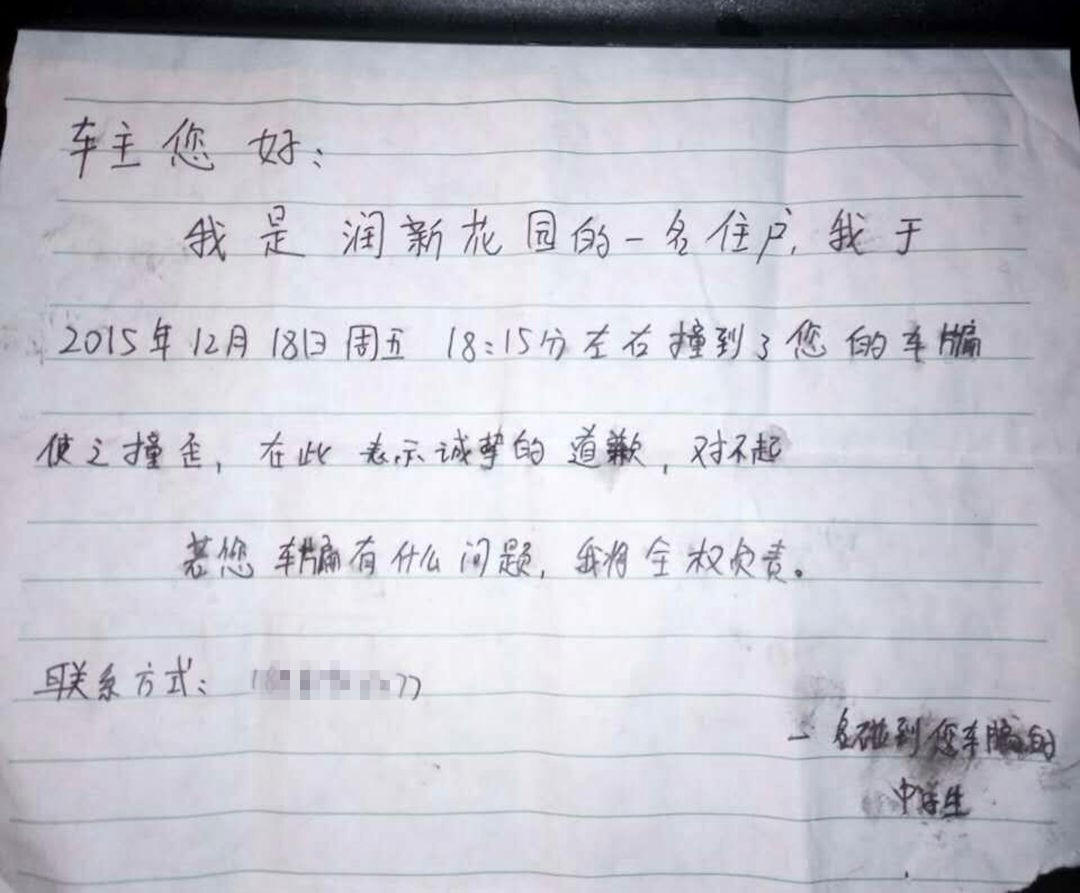 车主您好：
我是润新花园的一名住户，我于
2015年12月18日周五 18:15分左右撞到了您的车牖
使之撞歪，在此表示诚挚的道歉，对不起
若您车牖有什么问题，我将全权负责。
联系方式：18 77
一名碰到您车牖的
中学生